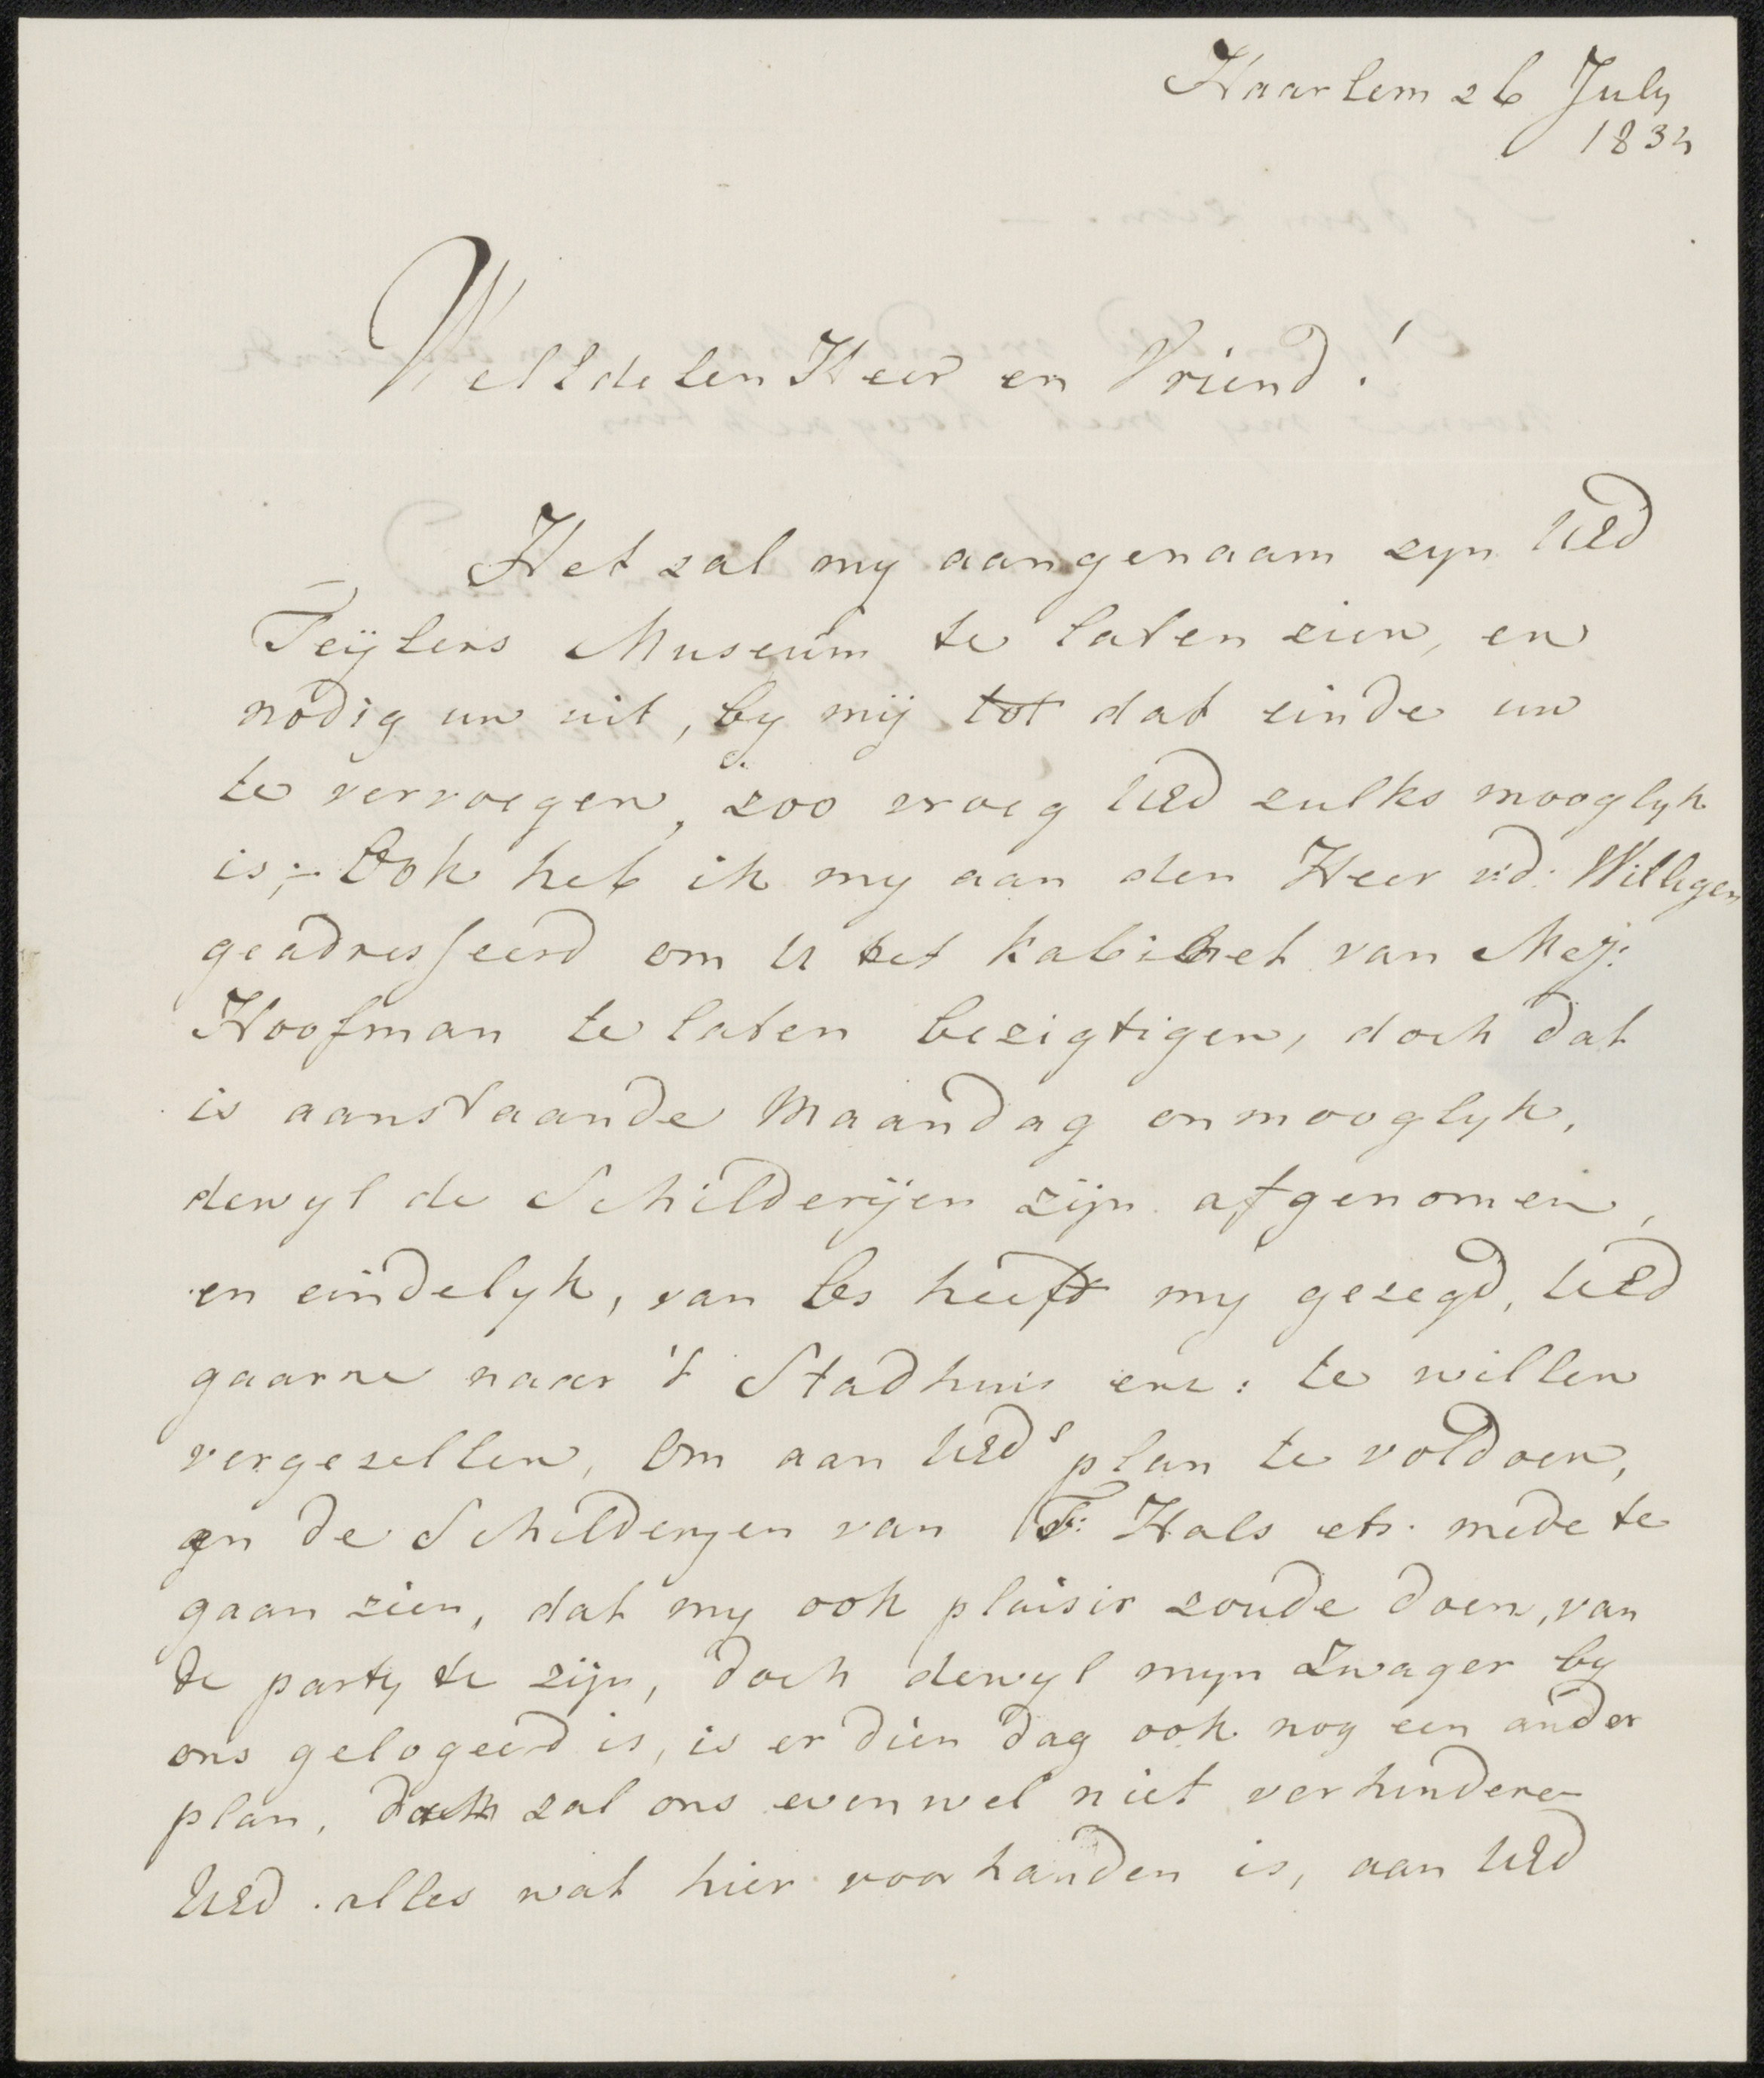 Haarlem 26 July
1834
WelEdelen Heer en Vriend!
Het zal my aangenaam zyn UEd
Teÿlers Museum te laten zien, en
nodig uw uit, by mij tot dat einde uw
te vervoegen, zoo vroeg UEd zulks mooglyk
is;- Ook heb ik my aan den Heer v:d: Willigen
geadresseerd om U het kabinet van Mej:
Hoofman te laten bezigtigen, doch dat
is aanstaande Maandag onmooglyk,
dewyl de Schilderijen zijn afgenomen,
en eindelyk, van Es heeft my gezegd, UEd
gaarne naar 't Stadhuis enz: te willen
vergezellen, Om aan UEds plan te voldoen,
en de Schilderyen van F: Hals etc. mede te
gaan zien, dat my ook plaisir zoude doen, van
de party te zijn, doch dewyl myn Zwager by
ons gelogeerd is, is er dien dag ook nog een ander
plan, doch zal ons evenwel niet verhinderen
UEd. alles wat hier voorhanden is, aan UEd